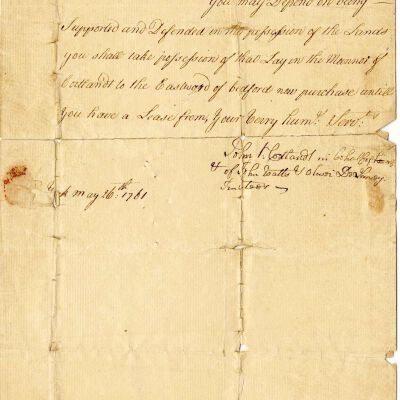 you may Depend on being
Supported and Defended in the possession of the Lands
you shall take possession of that Lay in the Mannor of
Cortlandt to the Eastward of bedford new purchase untill
You have a Lease from, Your Very humb. Serv.ts
John V. Cortlandt in behalf
& of John Watts & Oliver De Lancey
Trustees
may 26.th 1761